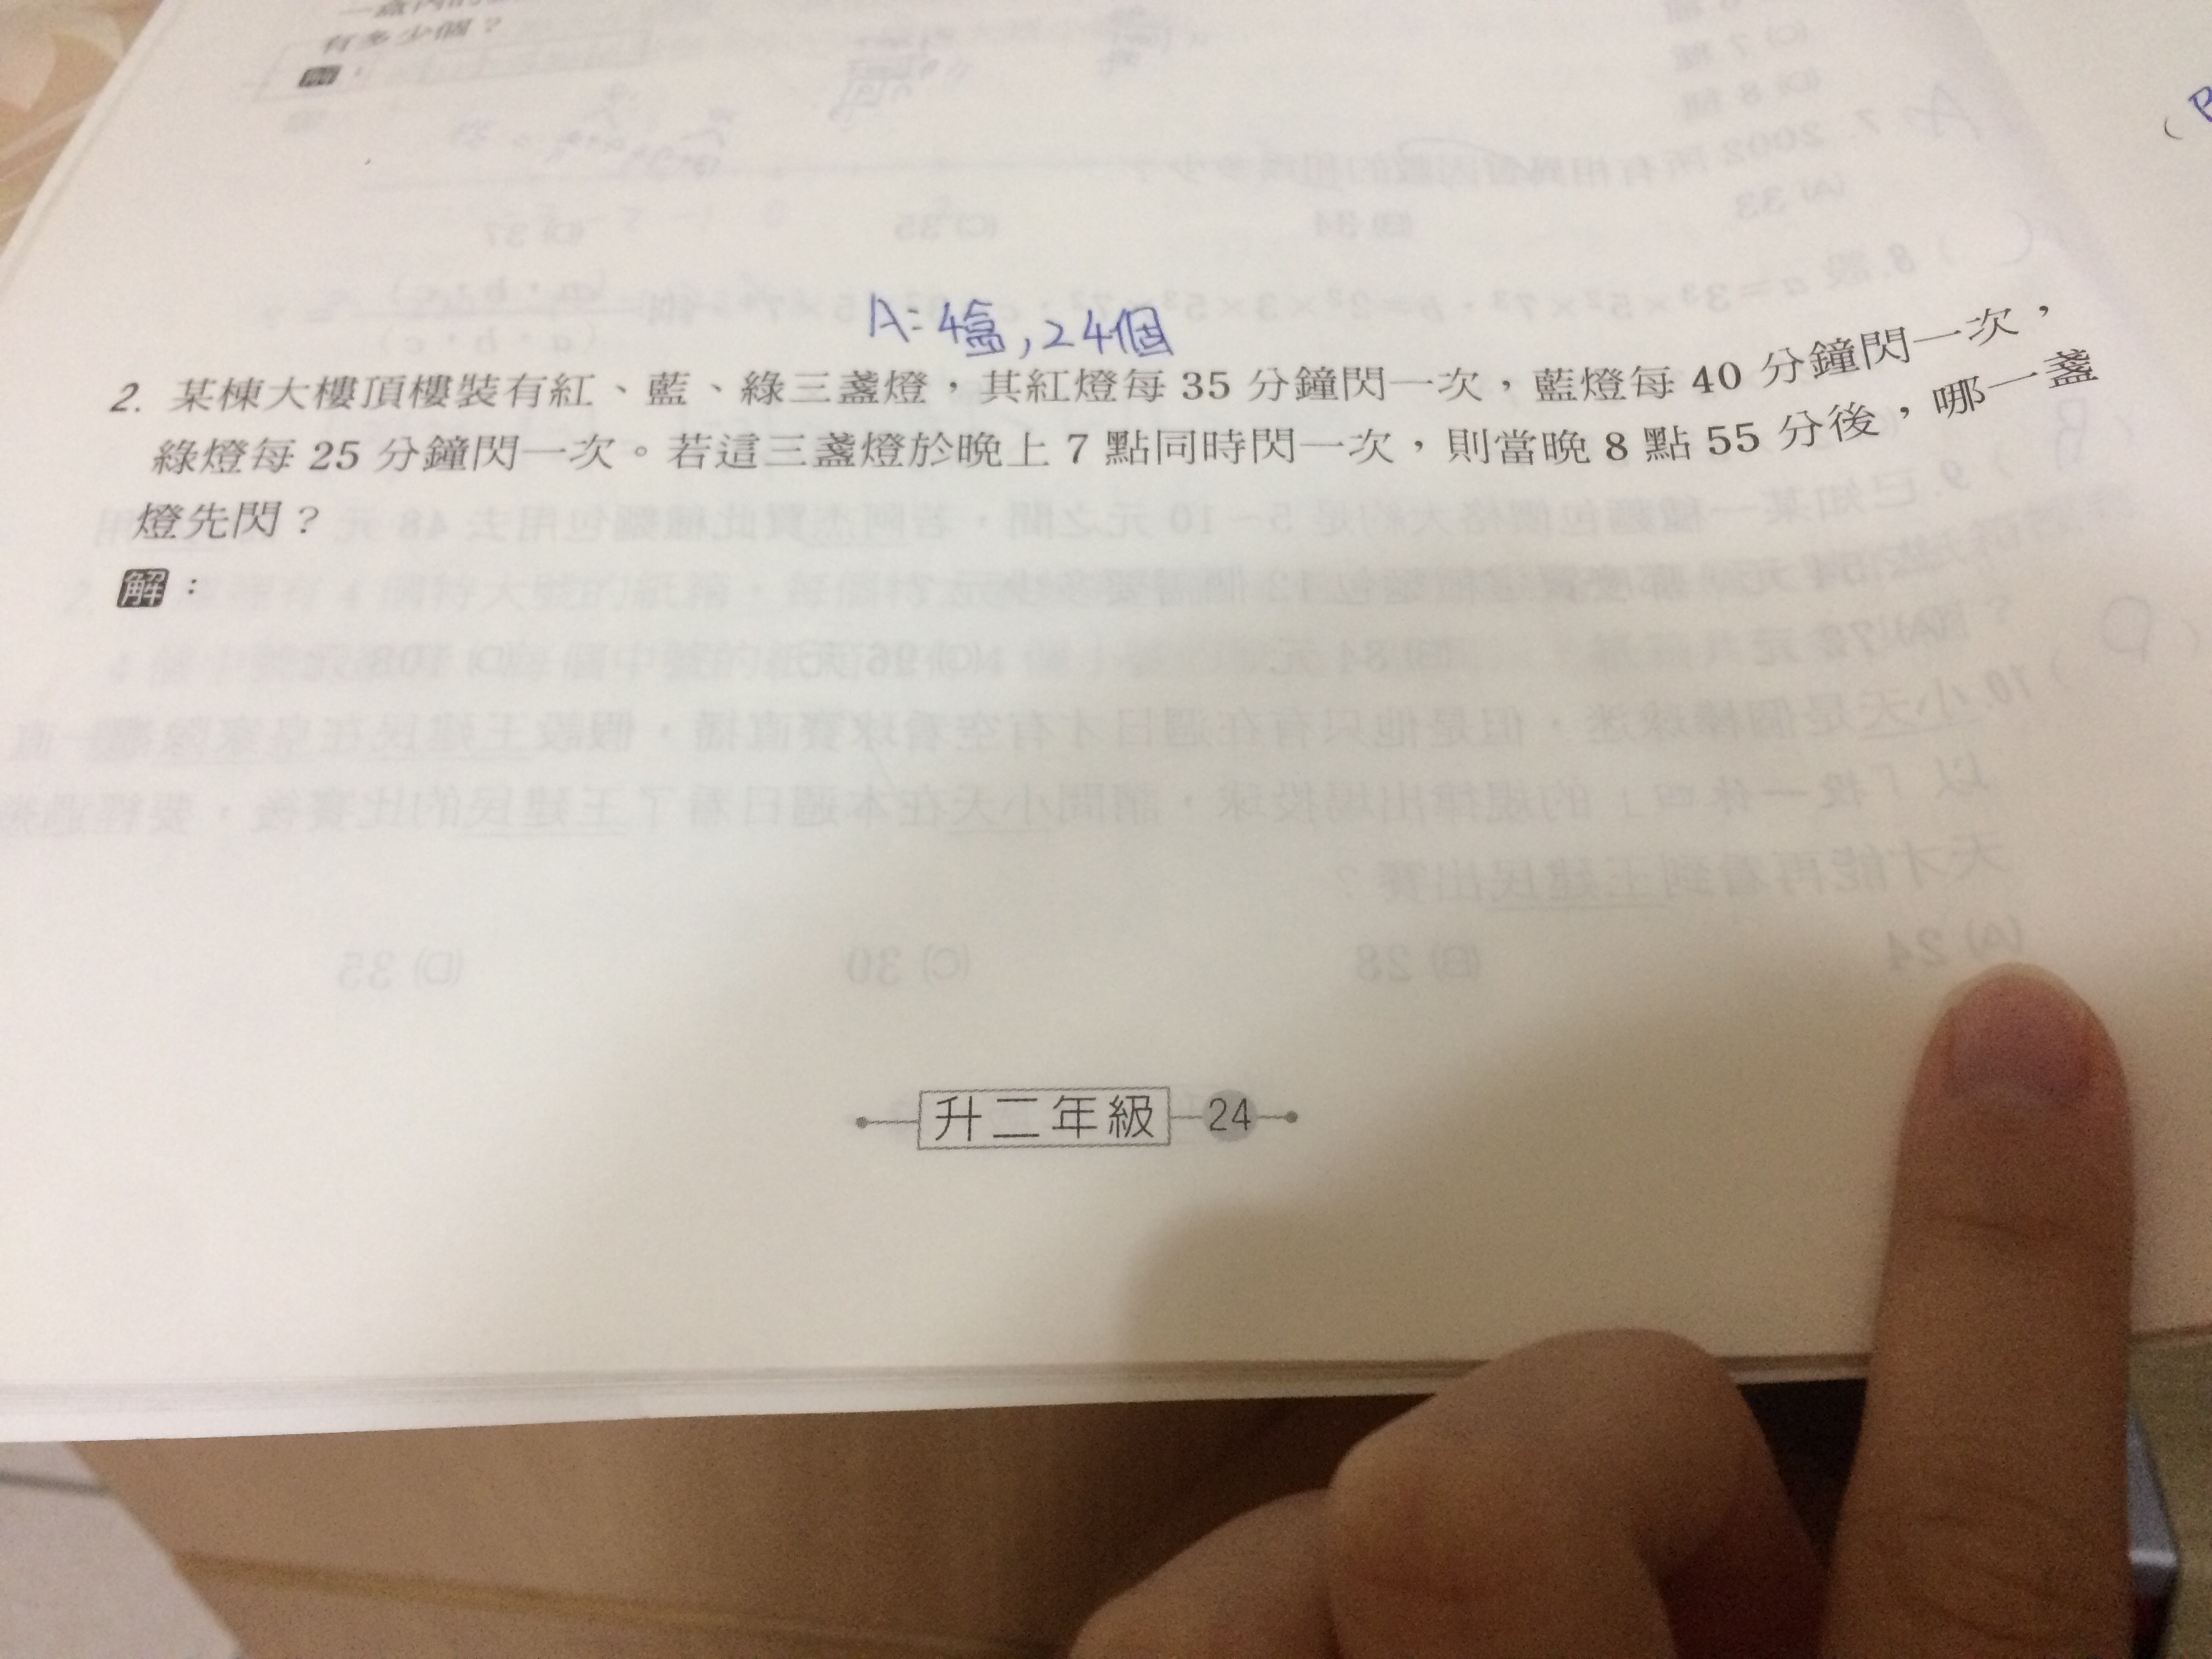 有多少個?
解:
A:4盒,24個
2. 某棟大樓頂樓裝有紅、藍、綠三盞燈,其紅燈每 35 分鐘閃一次,藍燈每 40 分鐘閃一次,
綠燈每 25 分鐘閃一次。若這三盞燈於晚上 7 點同時閃一次,則當晚 8 點 55 分後,哪一盞
燈先閃?
解:
升二年級 24